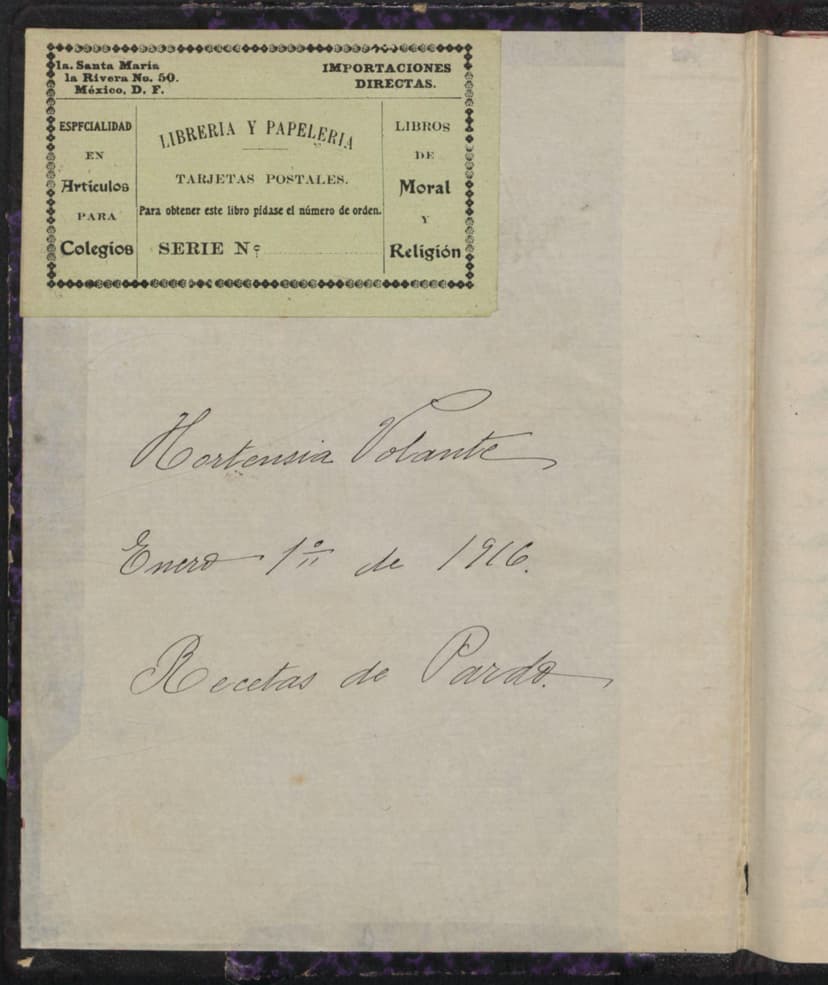 1a. Santa Maria
la Rivera No. 50.
México, D. F.
IMPORTACIONES
DIRECTAS.
ESPECIALIDAD
EN
Artículos
PARA
Colegios
LIBRERIA Y PAPELERIA
TARJETAS POSTALES.
Para obtener este libro pídase el número de orden.
SERIE Nº
LIBROS
DE
Moral
Y
Religión
Hortensia Volante
Enero 1º de 1916.
Recetas de Pardo.